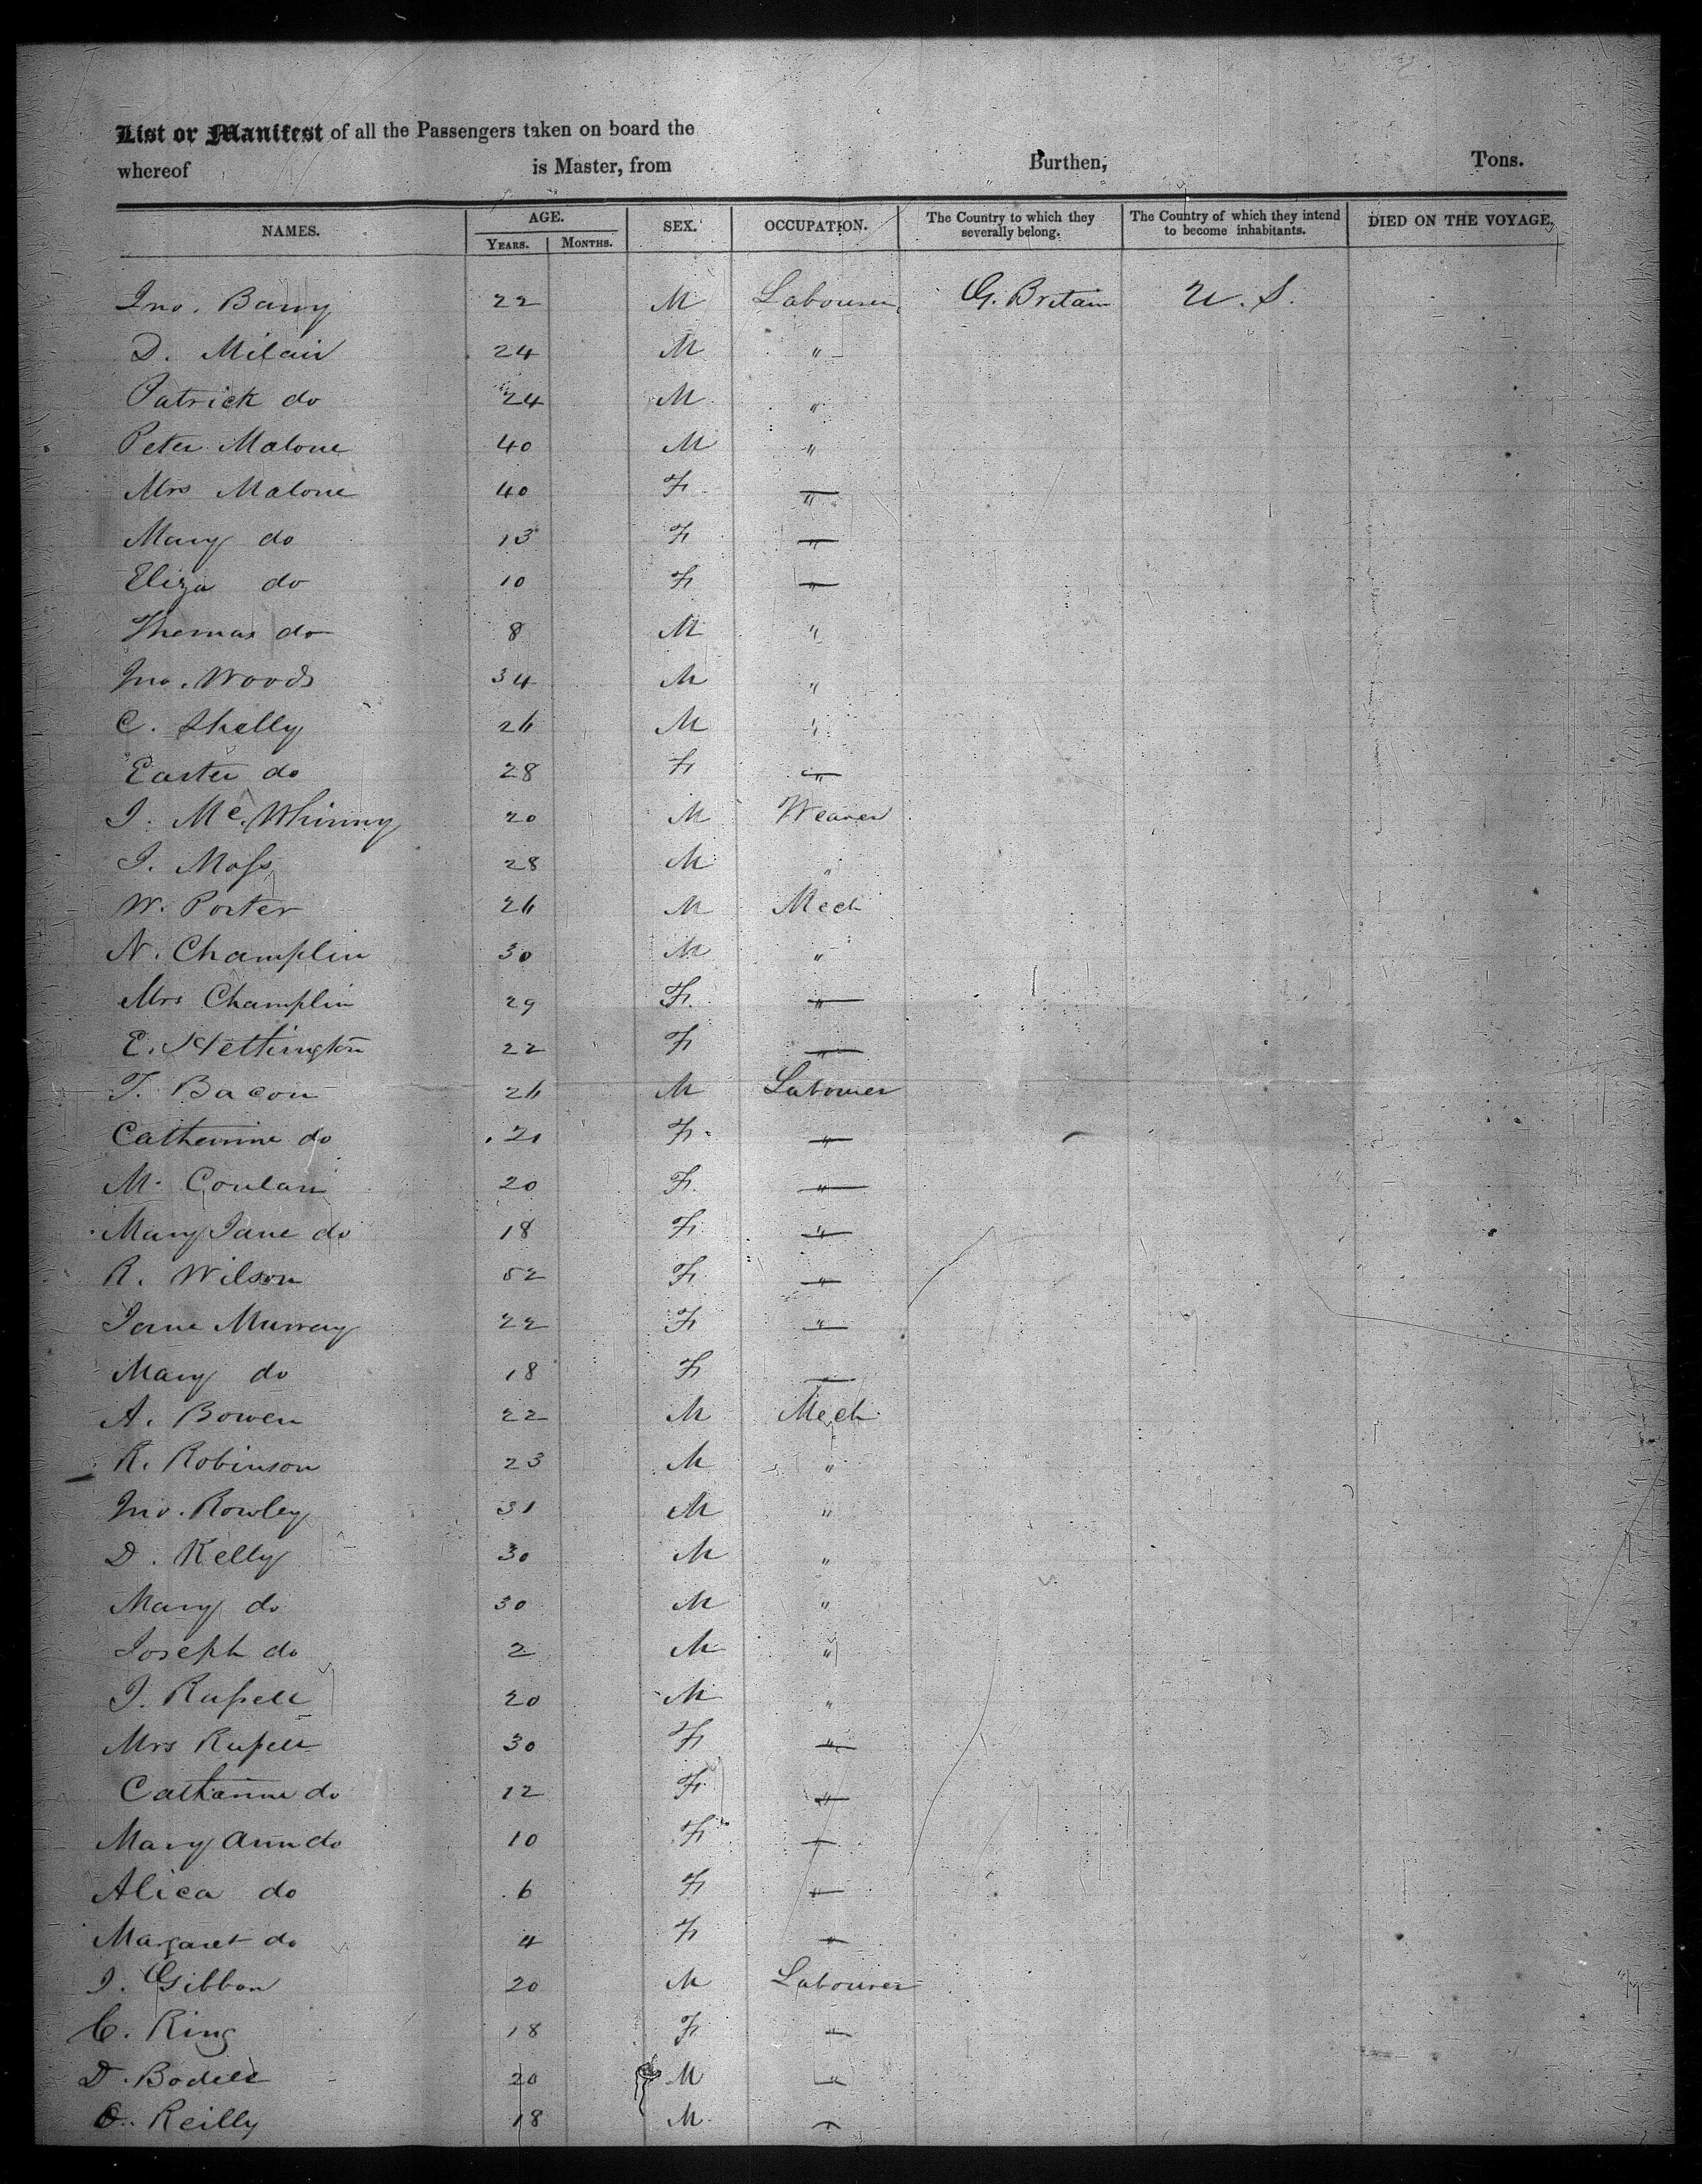 List or Manifest of all the Passengers taken on board the
whereof is Master, from Burthen, Tons.
NAMES. AGE. YEARS. MONTHS. SEX. OCCUPATION. The Country to which they severally belong. The Country of which they intend to become inhabitants. DIED ON THE VOYAGE.
Jno. Barry 22 M Labourer G. Britain U.S.
D. Milair 24 M "
Patrick do 24 M "
Peter Malone 40 M "
Mrs Malone 40 F "
Mary do 13 F "
Eliza do 10 F "
Thomas do 8 M "
Jno. Woods 34 M "
C. Shelly 26 M "
Easter do 28 F "
J. McWhinny 20 M Weaver
J. Moss 28 M "
W. Porter 26 M Mech
N. Champlin 30 M "
Mrs Champlin 29 F "
E. Hettington 22 F "
T. Bacon 26 M Labourer
Catherine do 21 F "
M. Conlan 20 F "
Mary Jane do 18 F "
R. Wilson 52 F "
Jane Murray 22 F "
Mary do 18 F —
A. Bowen 22 M Mech
R. Robinson 23 M "
Jno. Rowley 31 M "
D. Kelly 30 M "
Mary do 30 M "
Joseph do 2 M "
J. Russell 20 M "
Mrs Russell 30 F "
Catharine do 12 F "
Mary Ann do 10 F "
Alica do 6 F "
Margaret do 4 F "
J. Gibbon 20 M Labourer
C. Ring 18 F "
D. Bodell 20 M "
Reilly 18 M "